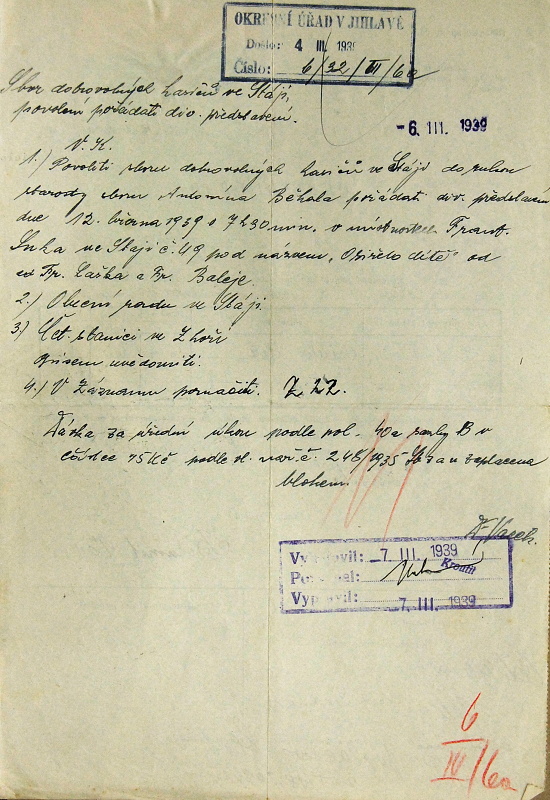 OKRESNÍ ÚŘAD V JIHLAVĚ
Došlo: 4 III. 1939
Číslo: 6/32/VI/6a
Sbor dobrovolných hasičů ve Stáji,
povolení pořádati div. představení.
-6. III. 1939
V. K.
1.) Povoliti sboru dobrovolných hasičů ve Stáji do rukou
starosty sboru Antonína Běhala pořádati div. představení
dne 12. března 1939 o 7 h 30 min. v místnostech Frant.
ve Stáji č. 49 pod názvem „Osiřelo dítě" od
Fr. Laška a Fr. Baleje.
2.) Obecní radu ve Stáji.
3.) Čet. stanici ve Zhoři
přísem uvědomiti.
4.) V záznamu poznačiti. Z 22.
Dávka za úřední úkon podle pol. 40a sazby B v
částce 15 Kč podle vl. nař. č. 248/1935 Sb z a n zaplacena
kolkem.
Vyhotovil: -7 III. 1939
Kroutil
Vypravil: -7. III. 1939
6
IV/6a